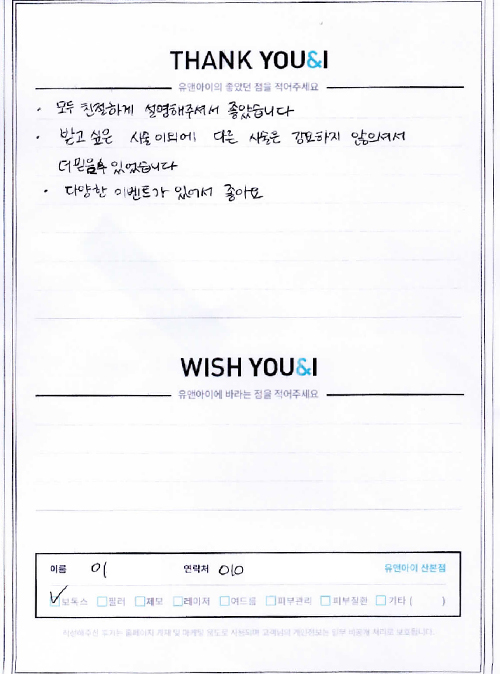 THANK YOU&I
유앤아이의 좋았던 점을 적어주세요
· 모두 친절하게 설명해주셔서 좋았습니다
· 받고 싶은 시술 이외에 다른 시술은 강요하지 않으셔서
더 믿을수 있었습니다
· 다양한 이벤트가 있어서 좋아요
WISH YOU&I
유앤아이에 바라는 점을 적어주세요
이름 이 연락처 010 유앤아이 산본점
보톡스 필러 제모 레이저 여드름 피부관리 피부질환 기타 ( )